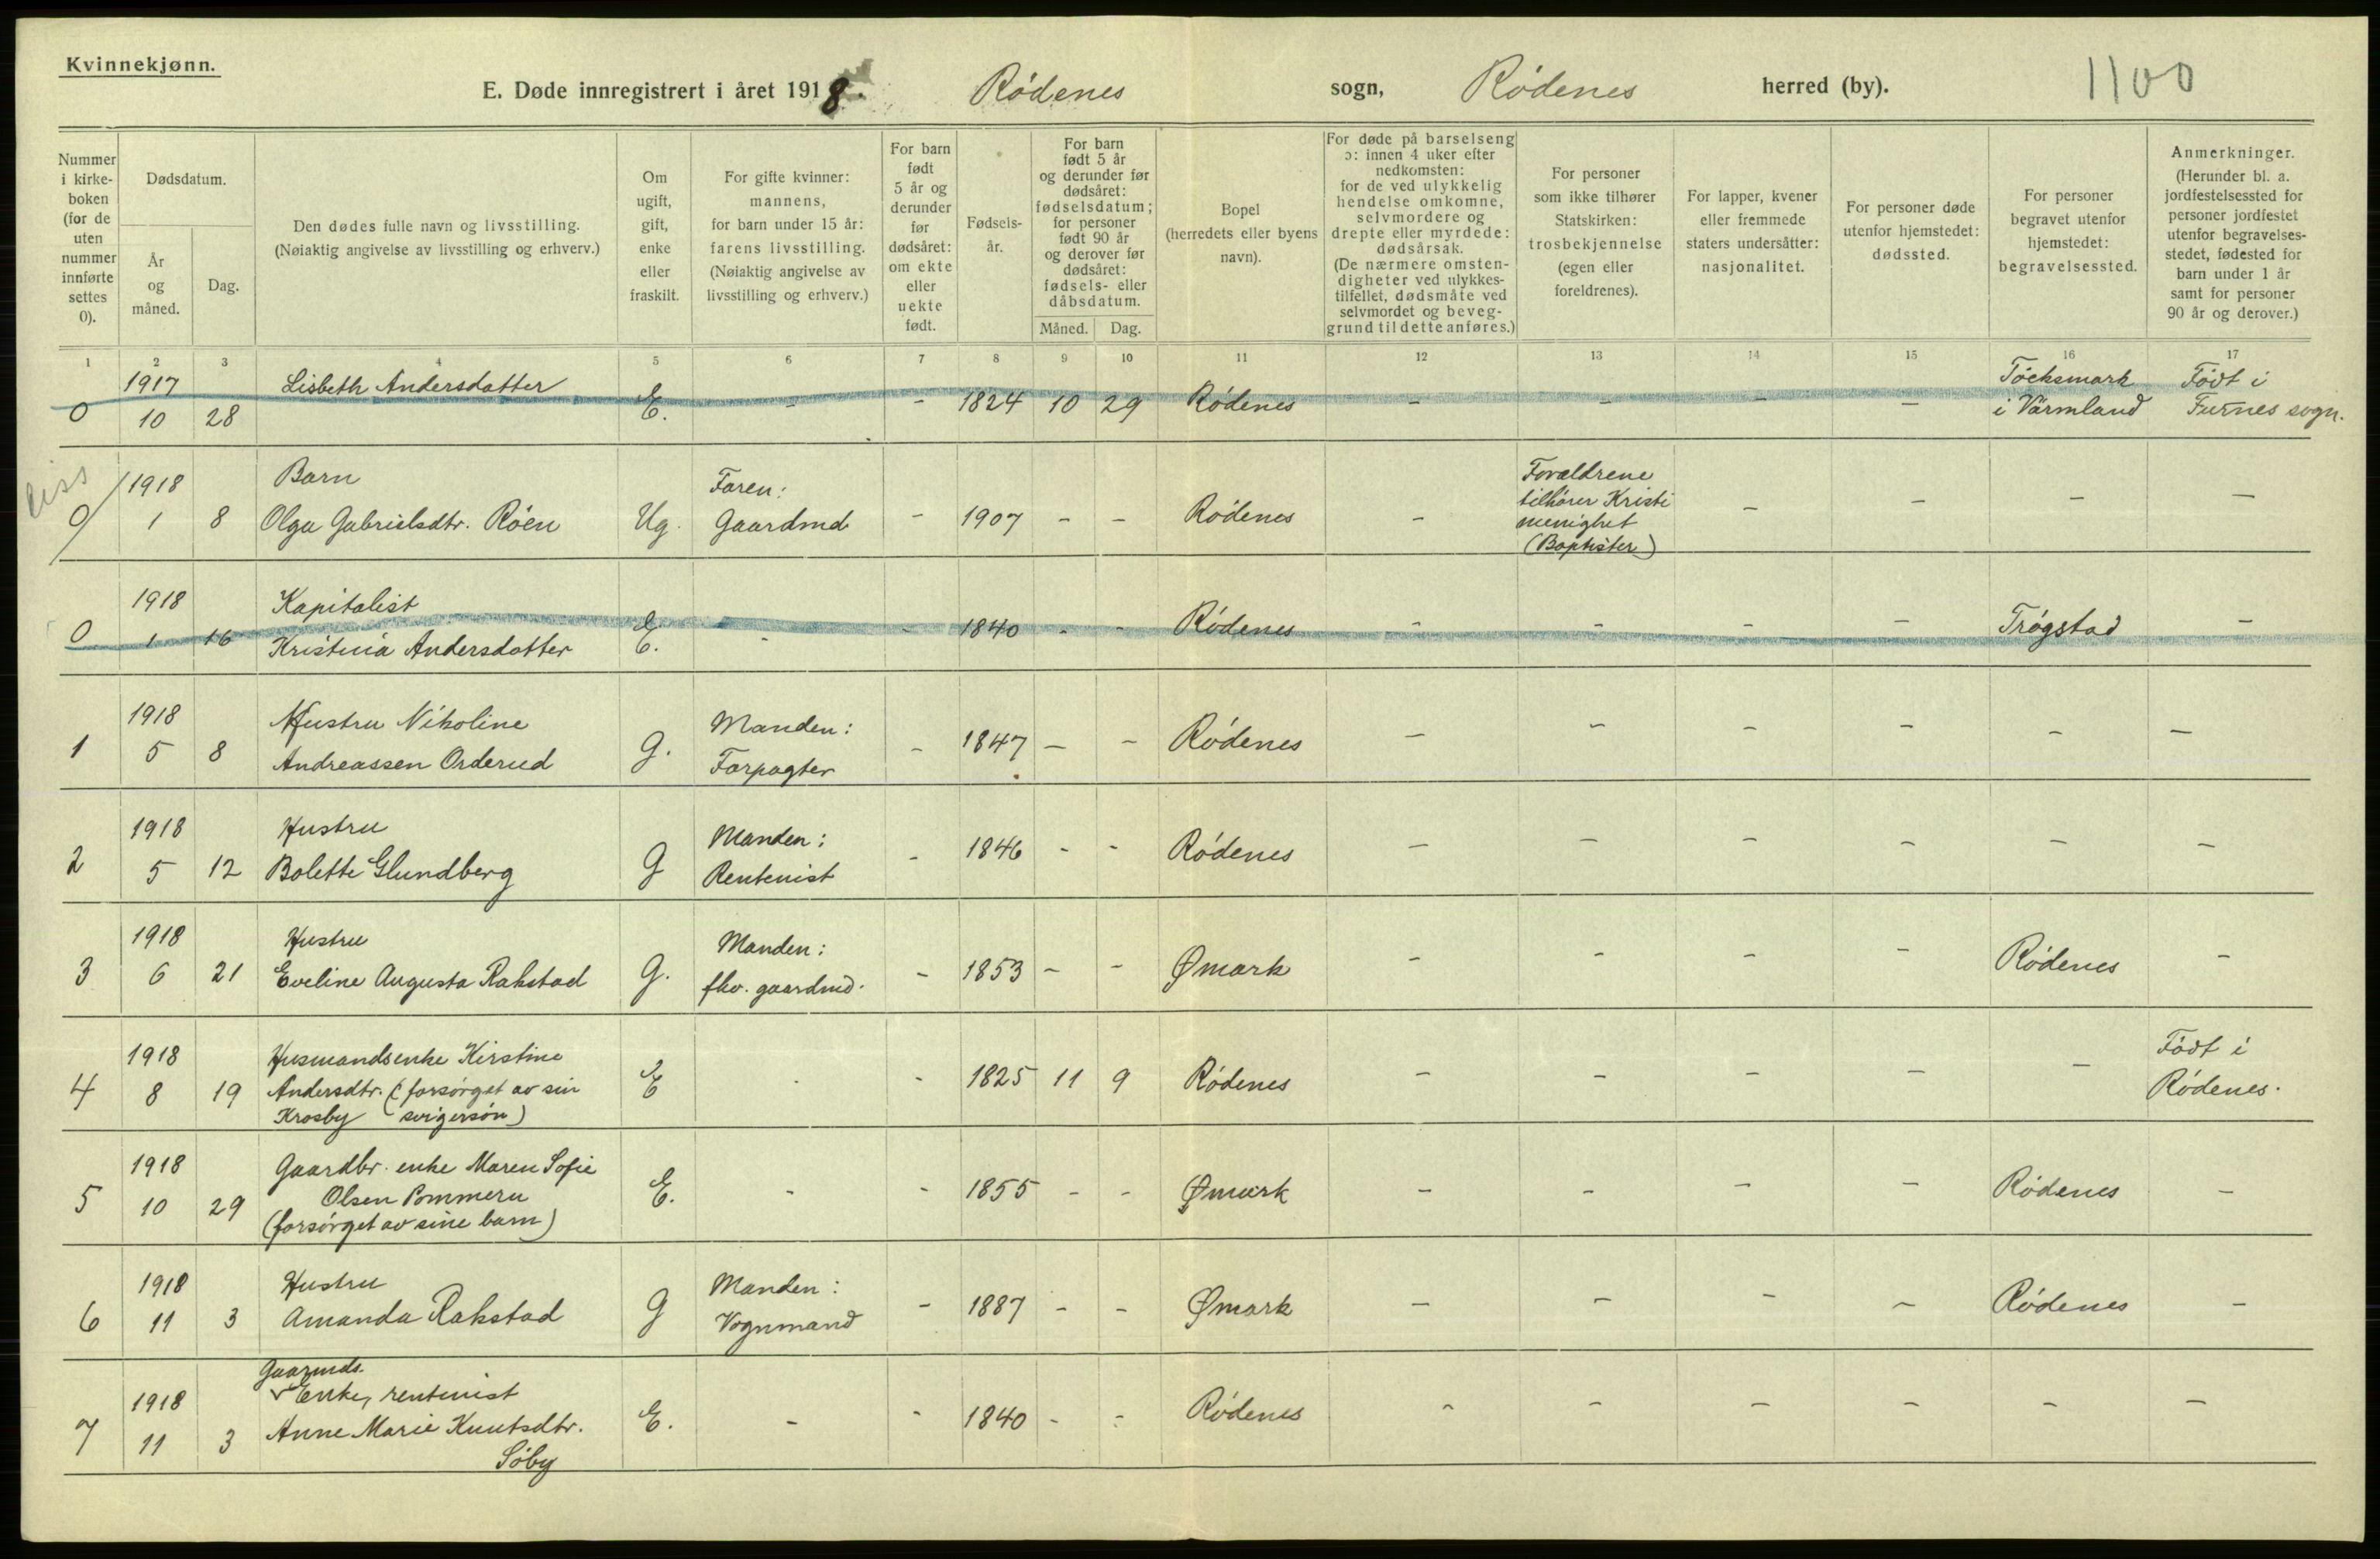 Kvinnekjønn.
E. Døde innregistrert i året 1918. Rødenes sogn, Rødenes herred (by). 1100
Nummer i kirke-boken (for de uten nummer innførte settes 0).
Dødsdatum.
År og måned.
Dag.
Den dødes fulle navn og livsstilling. (Nøiaktig angivelse av livsstilling og erhverv.)
Om ugift, gift, enke eller fraskilt.
For gifte kvinner: mannens, for barn under 15 år: farens livsstilling. (Nøiaktig angivelse av livsstilling og erhverv.)
For barn født 5 år og derunder før dødsåret: om ekte eller uekte født.
Fødsels-år.
For barn født 5 år og derunder før dødsåret: fødselsdatum; for personer født 90 år og derover før dødsåret: fødsels- eller dåbsdatum.
Måned. Dag.
Bopel (herredets eller byens navn).
For døde på barselseng ɔ: innen 4 uker efter nedkomsten: for de ved ulykkelig hendelse omkomne, selvmordere og drepte eller myrdede: dødsårsak. (De nærmere omsten-digheter ved ulykkes-tilfellet, dødsmåte ved selvmordet og beveg-grund til dette anføres.)
For personer som ikke tilhører Statskirken: trosbekjennelse (egen eller foreldrenes).
For lapper, kvener eller fremmede staters undersåtter: nasjonalitet.
For personer døde utenfor hjemstedet: dødssted.
For personer begravet utenfor hjemstedet: begravelsessted.
Anmerkninger. (Herunder bl. a. jordfestelsessted for personer jordfestet utenfor begravelses-stedet, fødested for barn under 1 år samt for personer 90 år og derover.)
1 2 3 4 5 6 7 8 9 10 11 12 13 14 15 16 17
1917 Lisbeth Andersdatter Töcksmark Født i
0 10 28 E. - - 1824 10 29 Rødenes - - - - i Värmland Furnes sogn.
diss
1918 Barn Faren: Forældrene
tilhører Kristi
0 1 8 Olga Gabrielsdtr. Röen Ug. Gaardmd - 1907 - - Rødenes - menighet - - - -
(Baptister)
1918 Kapitalist
0 1 16 Kristina Andersdatter E. - - 1840 - - Rødenes - - - - Trøgstad -
1918 Hustru Nikoline Manden:
1 5 8 Andreassen Orderud G. Forpagter - 1847 - - Rødenes - - - - - -
1918 Hustru Manden:
2 5 12 Bolette Glundberg G Rentenist - 1846 - - Rødenes - - - - - -
1918 Hustru Manden:
3 6 21 Eveline Augusta Rakstad G. fhv. gaardmd. - 1853 - - Ømark - - - - Rødenes -
1918 Husmandsenke Kirstine Født i
4 8 19 Andersdtr. (forsørget av sin E - - 1825 11 9 Rødenes - - - - - Rødenes.
Krosby svigersøn)
1918 Gaardbr. enke Maren Sofie
5 10 29 Olsen Pommeru E. - - 1855 - - Ømark - - - - Rødenes -
(forsørget av sine barn)
1918 Hustru Manden:
6 11 3 Amanda Rakstad G Vognmand - 1887 - - Ømark - - - - Rødenes -
Gaarmds.
1918 Enke, rentenist
7 11 3 Anne Marie Knutsdtr. E. - - 1840 - - Rødenes - - - - - -
Söby